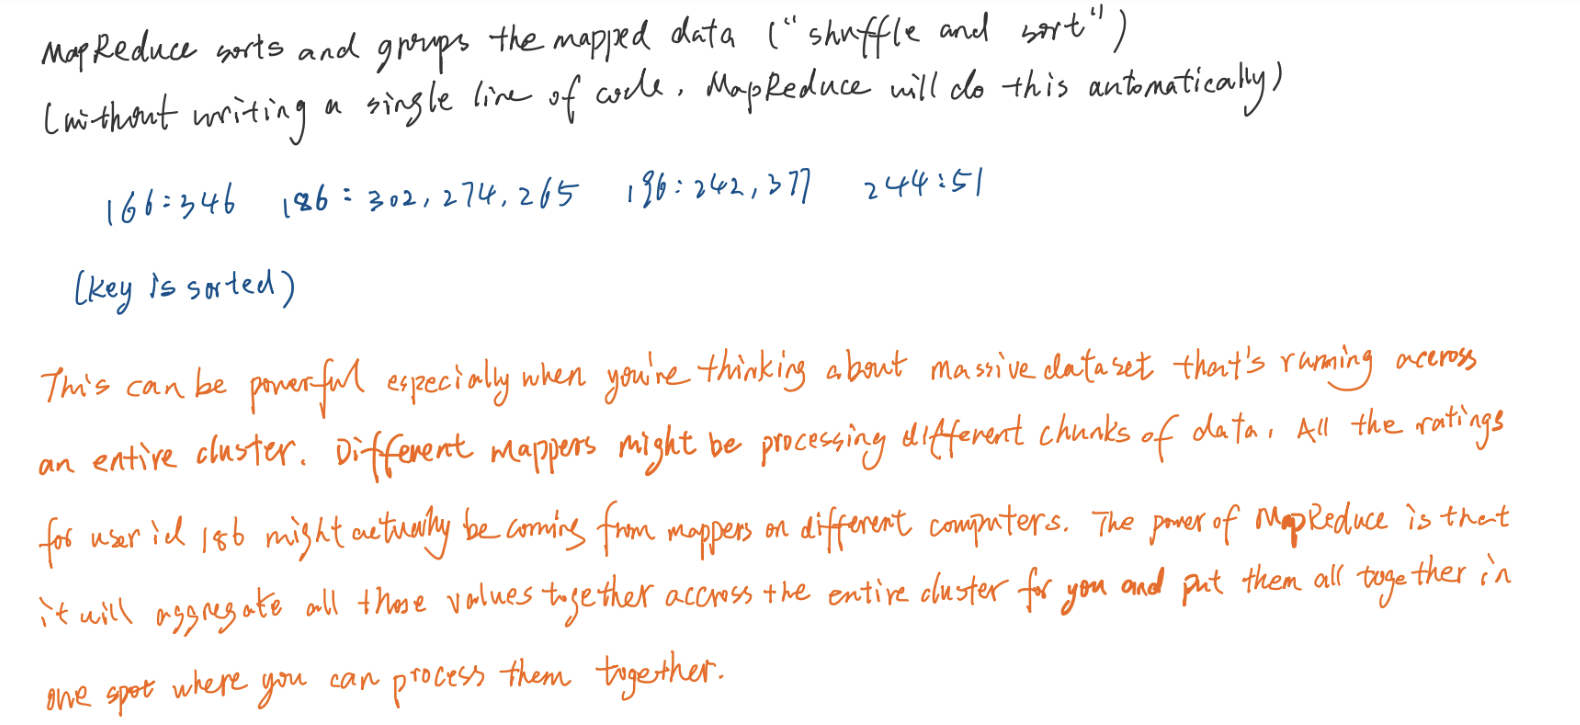 MapReduce sorts and groups the mapped data ("shuffle and sort")
(without writing a single line of code, MapReduce will do this automatically)
166:346 186:302,274,265 196:242,377 244:51
(key is sorted)
This can be powerful especially when you're thinking about massive dataset that's running accross
an entire cluster. Different mappers might be processing different chunks of data. All the ratings
for user id 186 might actually be coming from mappers on different computers. The power of MapReduce is that
it will aggregate all those values together accross the entire cluster for you and put them all together in
one spot where you can process them together.